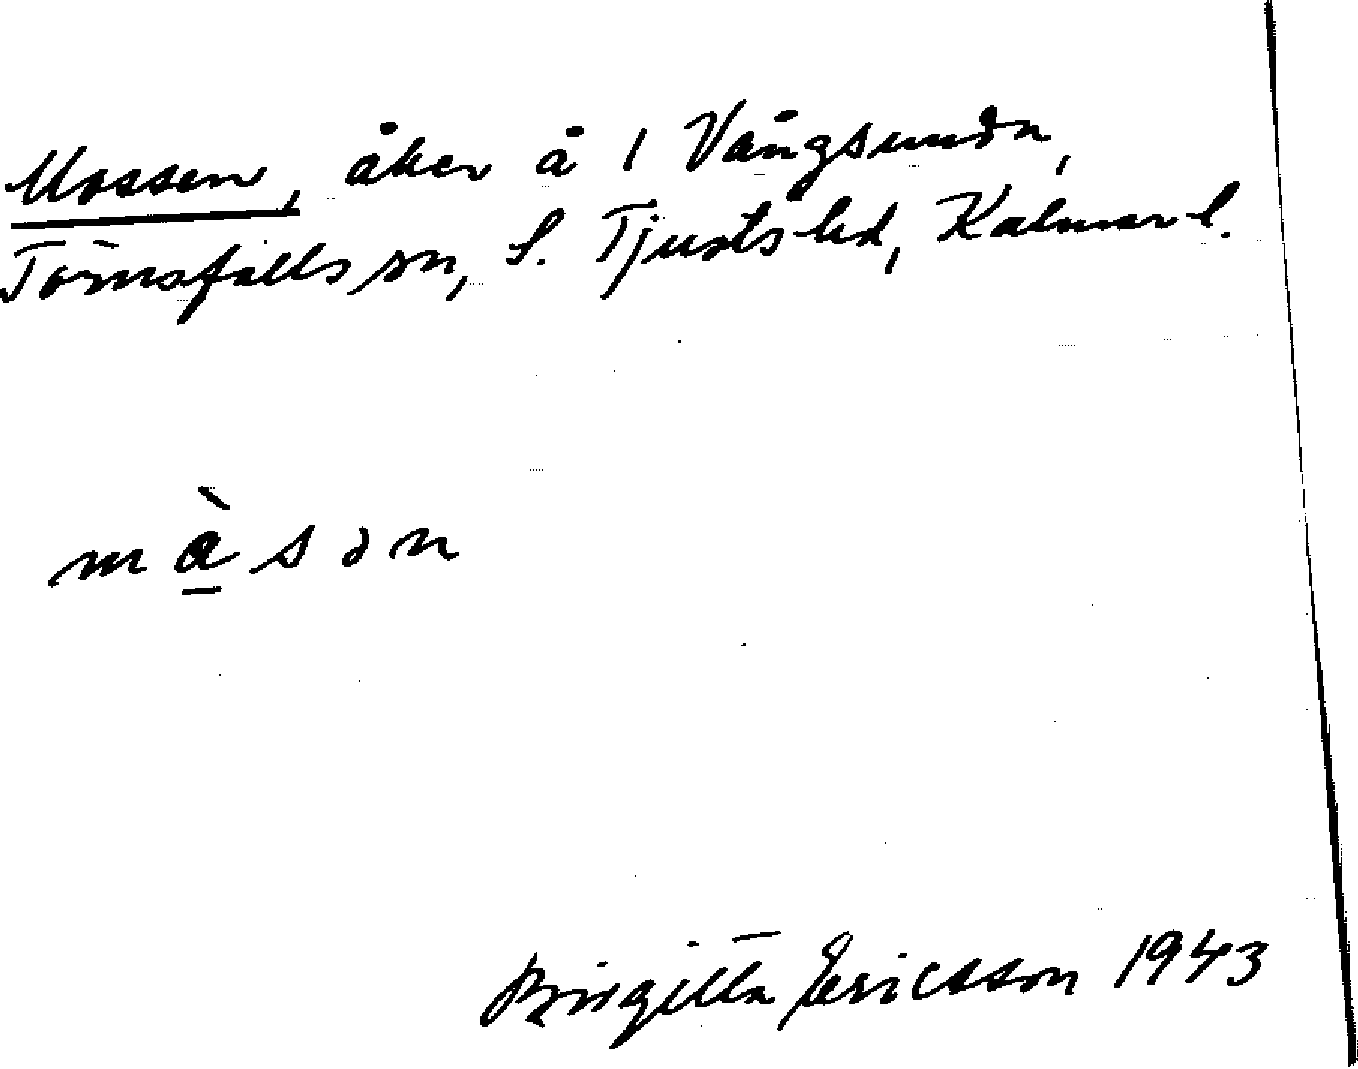 Mossen, åker å 1 Vångsunda,
Törnsfalls sn, S. Tjusts hd, Kalmar l.
màsən
Birgitta Ericsson 1943